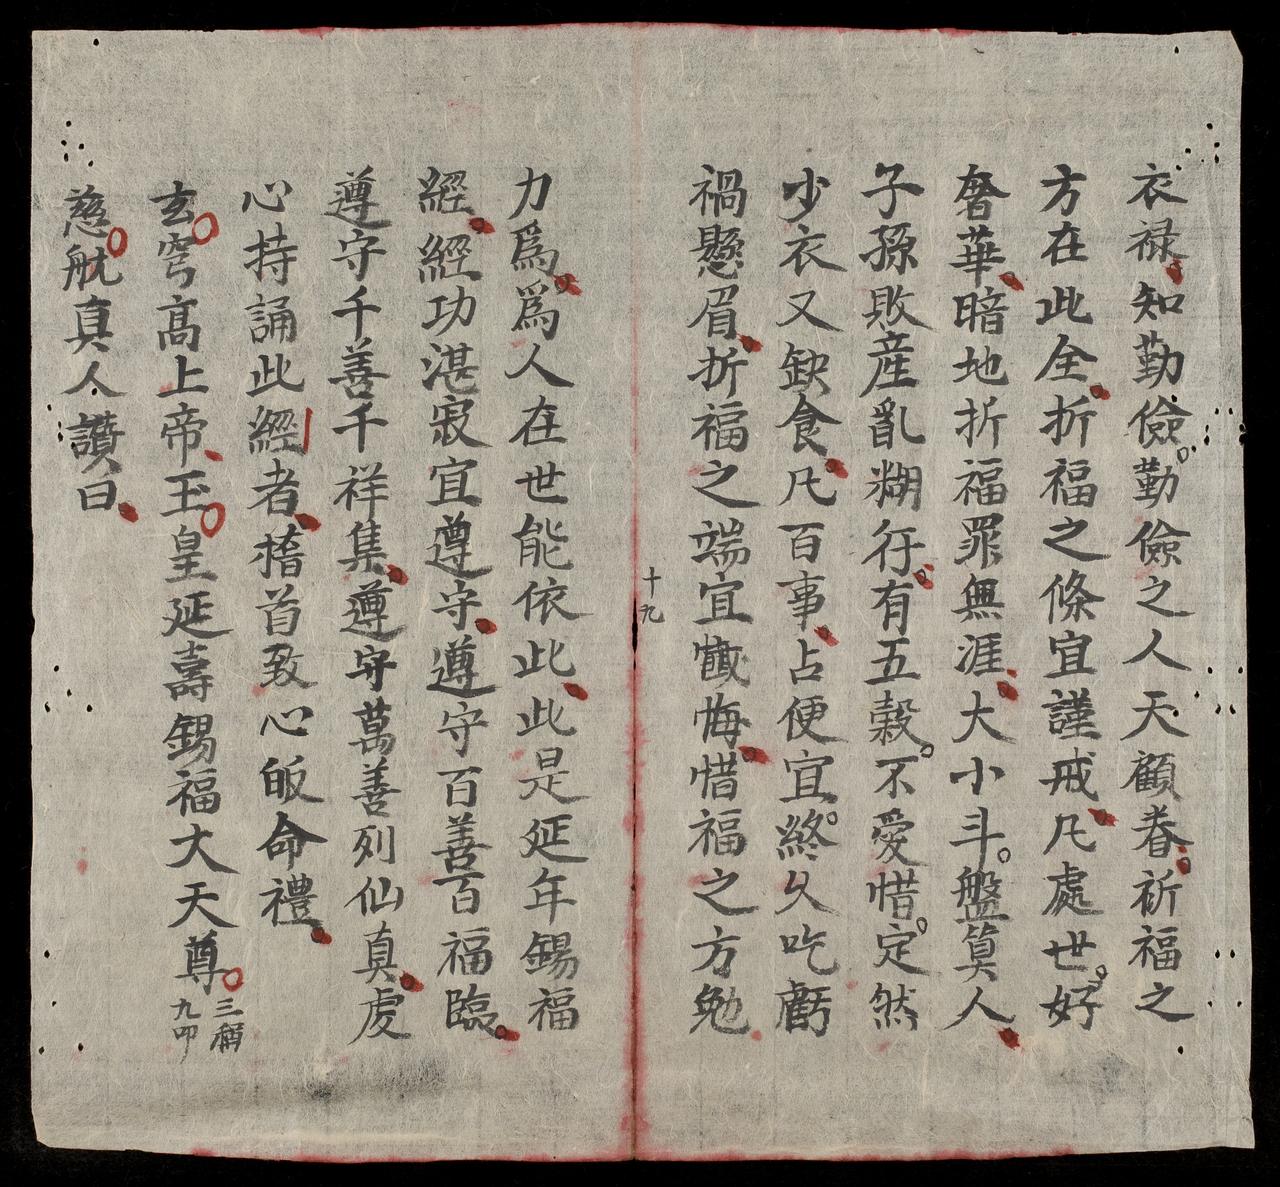 衣祿知勤儉勤儉之人天顧眷祈福之
方在此全折福之條宜謹戒凡處世好
奢華暗地折福罪無涯大小斗盤算人
子孫敗産亂糊行有五穀不愛惜定然
少衣又缺食凡百事占便宜終久吃虧
禍懸眉折福之端宜懺悔惜福之方勉
十九
力爲爲人在世能依此此是延年錫福
經經功湛寂宜遵守遵守百善百福臨
遵守千善千祥集遵守萬善列仙真虔
心持誦此經者稽首致心皈命禮
玄穹高上帝玉皇延壽錫福大天尊 三稱 九叩
慈航真人讚曰